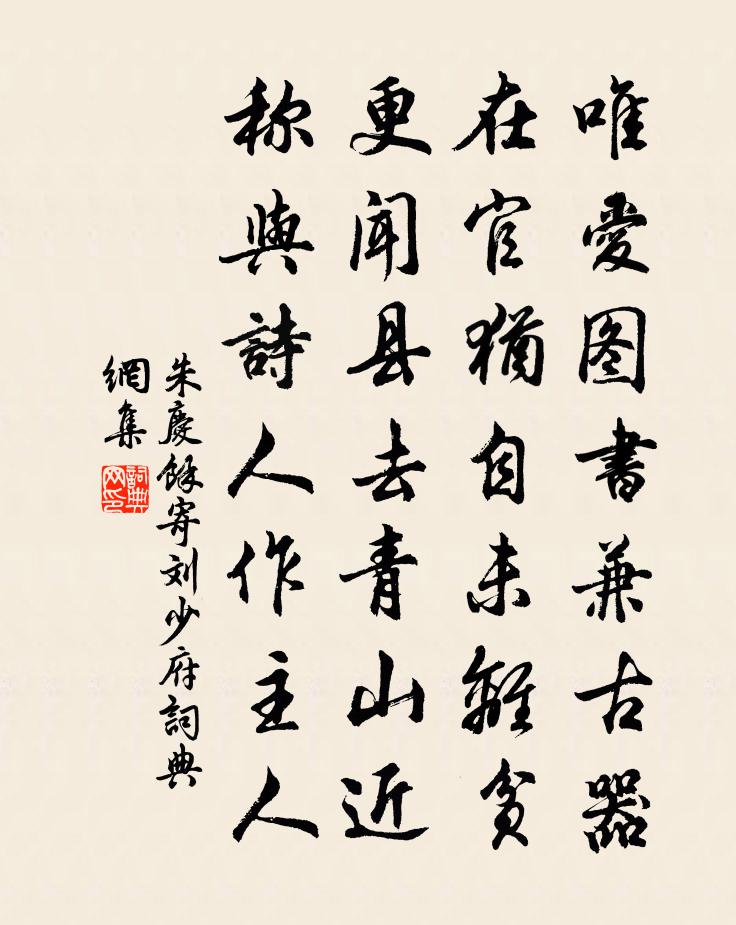 唯愛图書兼古器
在官猶自未離貧
更聞县去青山近
称與詩人作主人
朱慶餘寄刘少府詞典
網集
詞典
网印